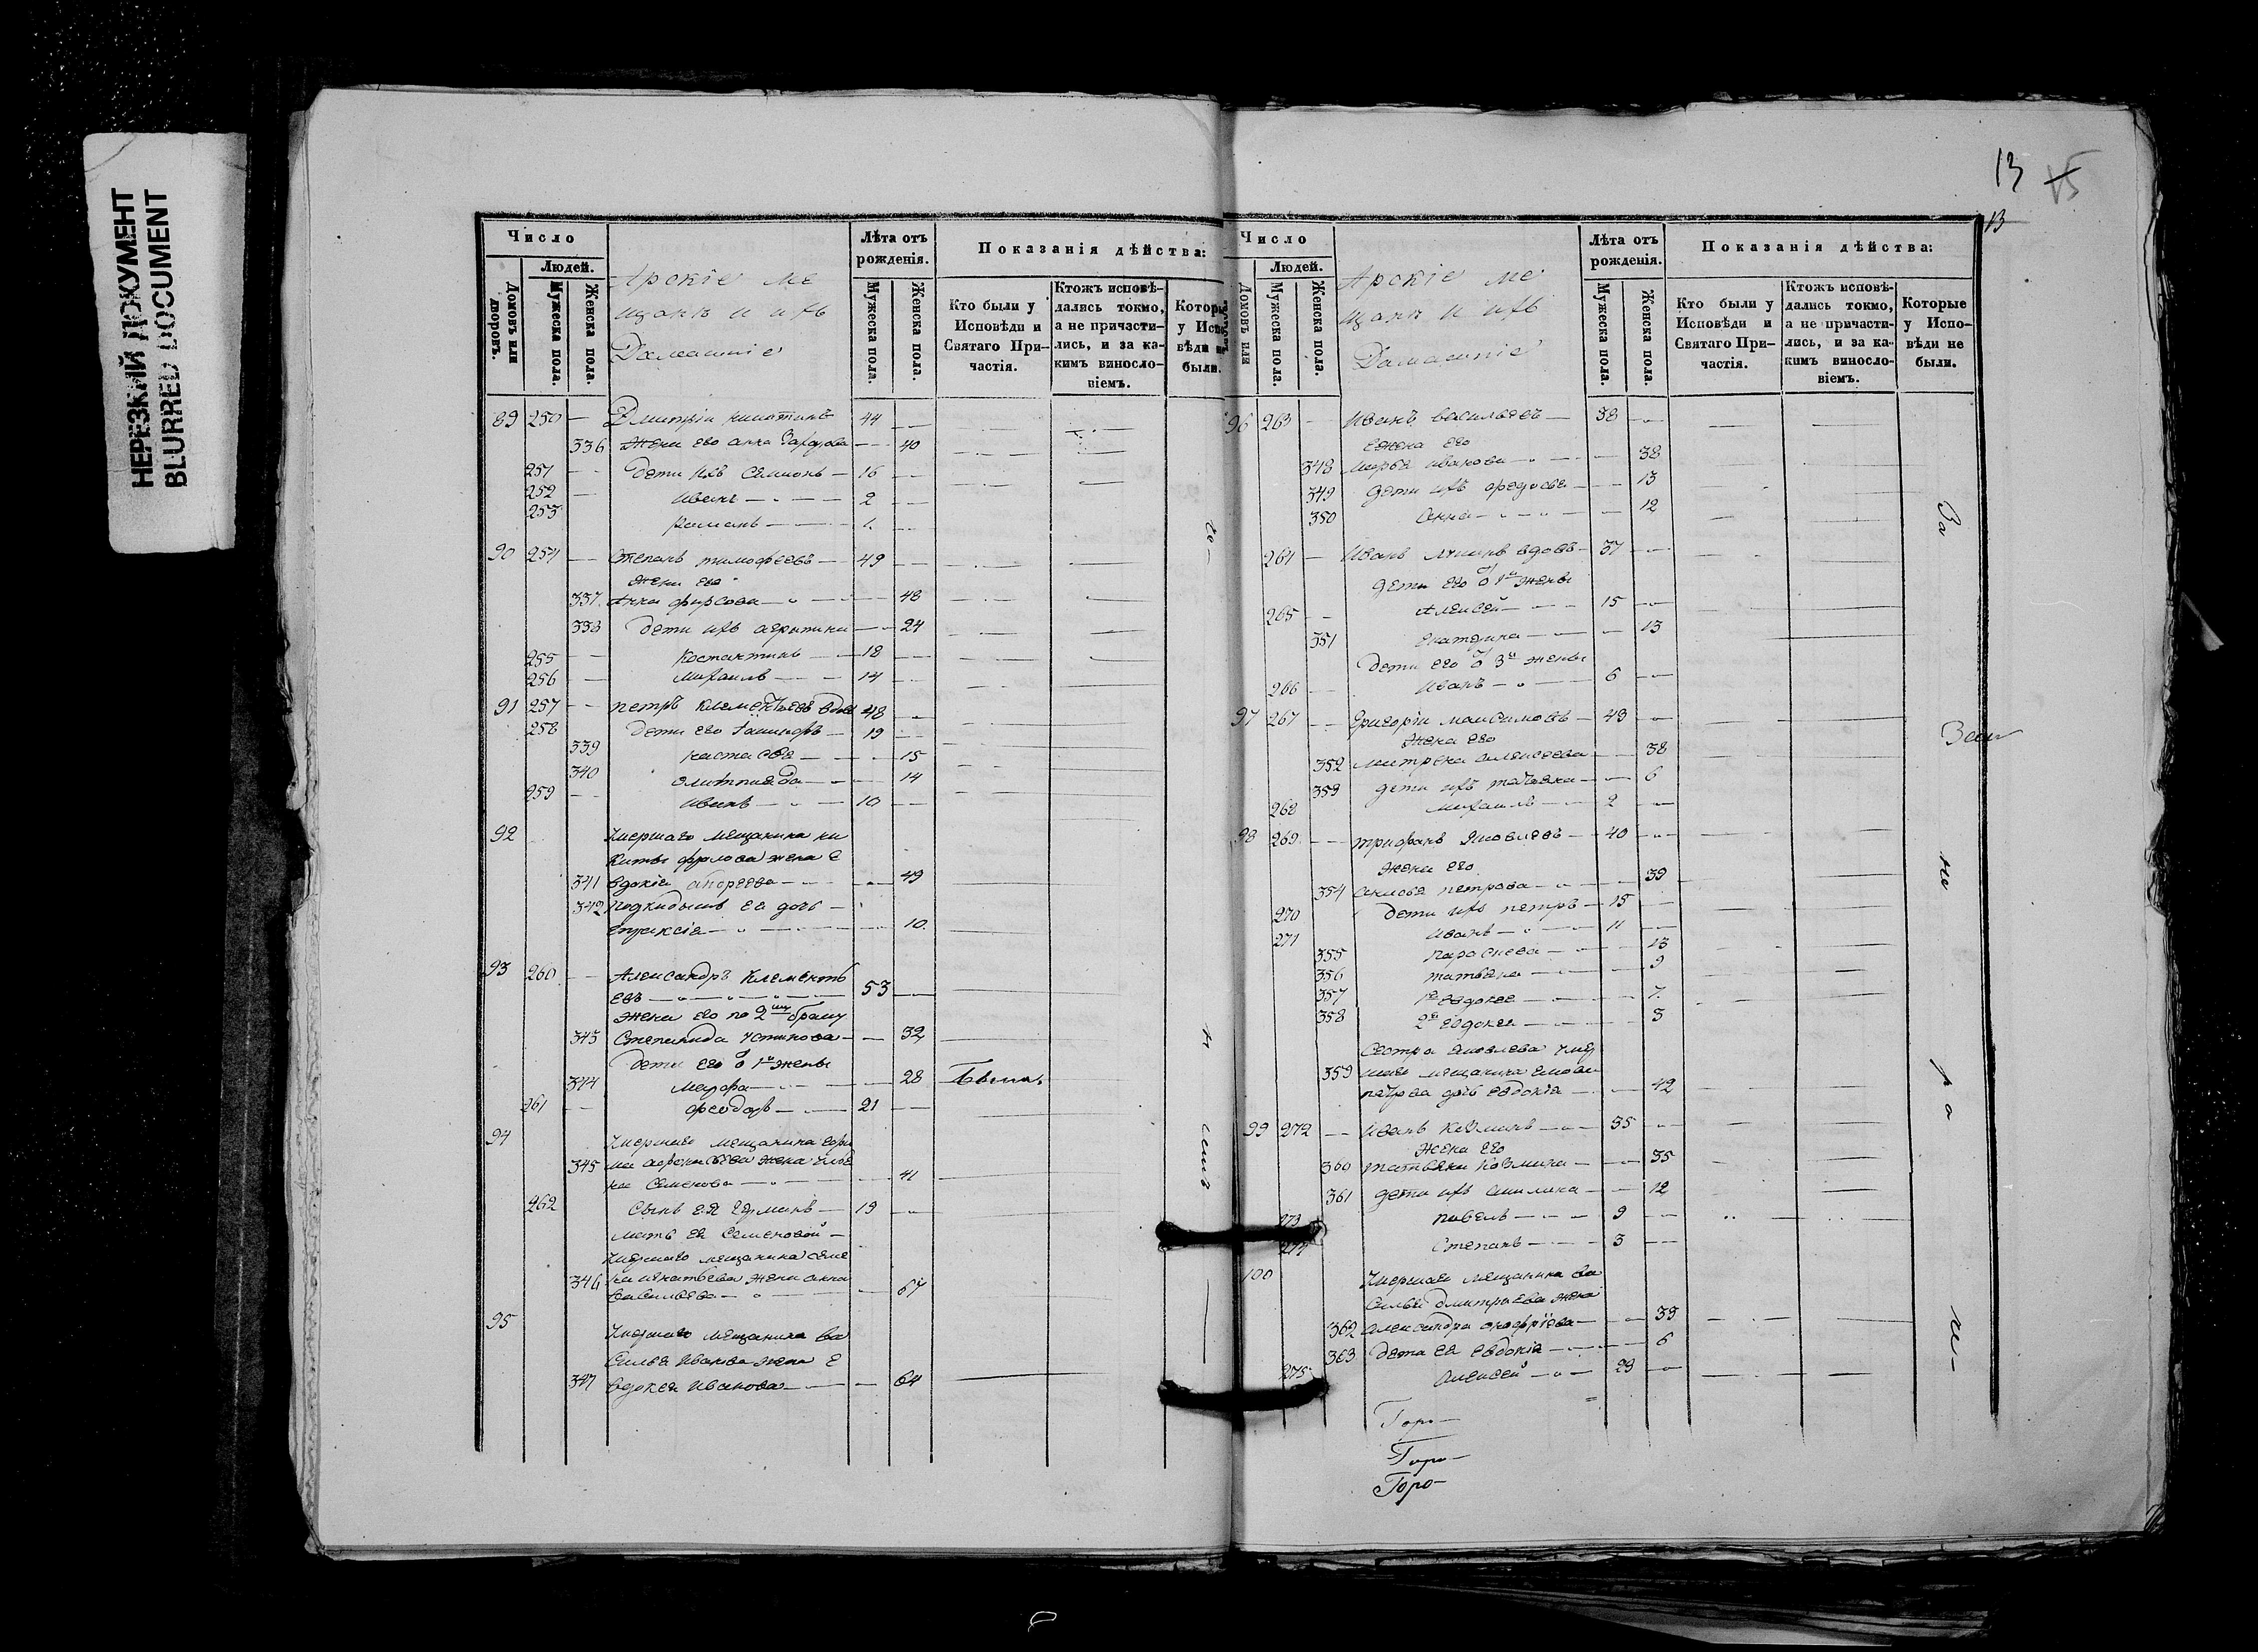 НЕРЕЗКИЙ ДОКУМЕНТ
BLURRED DOCUMENT
Число
Людей.
Домовъ или дворовъ.
Мужеска пола.
Женска пола.
Арскіе ме
щане и ихъ
Домашніе
Лѣта отъ рожденія.
Мужеска пола.
Женска пола.
Показанія дѣйства:
Кто были у Исповѣди и Святаго При-частія.
Ктожъ исповѣ-дались токмо, а не причасти-лись, и за ка-кимъ винослo-віемъ.
у Испо
были.
89 250 — Дмитрій никитинъ 44
336 Жена его анна 40
251 дети ихъ Семионъ — 16
252 Иванъ — 2
253 Романъ — 1
90 254 — Степанъ тимофеевъ — 49
жена его
337 Анна фирсова — 48
338 дети ихъ 24
255 Костантинъ — 18
256 михаилъ — 14
91 257 — петръ Клементьевъ вдов 48
258 дети его 19
339 настасья — 15
340 14
259 Иванъ — 10
92 Умершаго мещанина ни
киты фролова жена е
341 вдокія андреева — 49
342 подкидышъ ея дочь —
епраксія — 10
93 260 — Александръ Клементь
евъ — 53
жена его по 2му браку
343 Степанида устинова — 32
дети его о 1й жены
344 мавра — 28 была
261 феодоръ — 21
94 Умершаго мещанина
345 жена
на Семенова — 41
262 Сынъ ея 19
мать ея Семеновой —
Умершаго мещанина семе
346 на игнатьева жена анна
васильева — 67
95 Умершаго мещанина ва
силья Иванова жена е
347 вдокея Иванова — 64
13
15
13
Число
Людей.
Домовъ или
Мужеска пола.
Женска пола.
Арскіе ме
щане и ихъ
Домашніе
Лѣта отъ рожденія.
Мужеска пола.
Женска пола.
Показанія дѣйства:
Кто были у Исповѣди и Святаго При-частія.
Ктожъ исповѣ-дались токмо, а не причасти-лись, и за ка-кимъ винослo-віемъ.
Которые у Испо-вѣди не были.
96 263 — Иванъ васильевъ — 38
жена его
348 марья иванова — 38
349 дети ихъ федосья — 13
350 Анна — 12
264 — Иванъ вдовъ — 37
дети его о 1й жены
265 Алексей — 15
351 екатерина — 13
дети его о 3й жены
266 Иванъ — 6
97 267 — Григорій максимовъ — 43
жена его
352 матрена алексеева 38
353 дети ихъ татьяна — 6
268 михаилъ — 2
98 269 — трифанъ яковлевъ — 40
жена его
354 петрова — 39
270 дети ихъ петръ — 15
271 Иванъ — 11
355 параскева — 13
356 татьяна — 9
357 1я евдокея — 7
358 2я евдокея — 3
Сестра яковлева умер
359 шаго мещанина якова
петрова дочь евдокія — 42
99 272 — Иванъ Козминъ — 35
жена его
360 татьяна Козмина — 35
361 дети ихъ акилина — 12
273 павелъ — 9
274 Степанъ — 3
100 Умершаго мещанина ва
силья дмитріева жена
362 александра онофріева — 39
363 дети ея евдокія — 6
275 алексей — 23
За
не
ра
Горо—
Горо—
Горо—